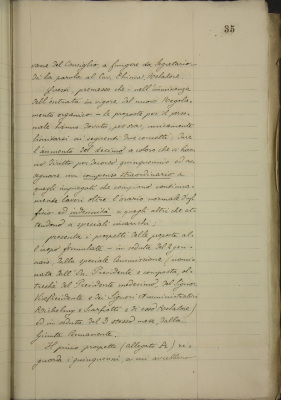 35
zione del Consiglio, a fungere da Segretario
dà la parola al Cav. Chimici, relatore.
Questi, premesso che, nell'imminenza
dell'entrata in vigore del nuovo Regola-
mento organico, le proposte per il perso-
nale hanno dovuto, per ora, unicamente
limitarsi ai seguenti due concetti; dare
l'aumento del decimo a coloro che vi han-
no diritto per decorso quinquennio ed as-
segnare un compenso straordinario a
quegli impiegati che compiono continua-
mente lavori oltre l'orario normale d'uf-
ficio ed indennità a quegli altri che at-
tendono a speciali incarichi,
presenta i prospetti delle proposte al-
l'uopo formulate, in seduta del 2 gen-
naio, dalla speciale Commissione (nomi-
nata dall'On. Presidente e composta, ol-
trechè del Presidente medesimo, del Signor
Vicepresidente e dei Signori Amministratori
e Scarfatti e di esso relatore)
ed in seduta del 3 stesso mese, dalla
Giunta Permanente.
Il primo prospetto (allegato A) ri-
guarda i quinquenni, a cui avrebbero